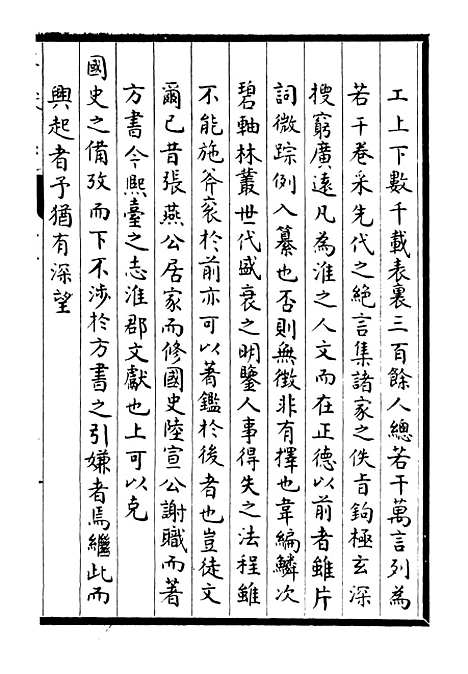 工上下數千載表裏三百餘人總若干萬言列為
若干卷采先代之絶言集諸家之佚㫖鉤極玄深
搜窮廣遠凡為淮之人文而在正德以前者雖片
詞微踪例入纂也否則無徴非有擇也韋編鱗次
碧軸林叢世代盛衰之明鑒人事得失之法程雖
不能施斧衮於前亦可以著鑑於後者也豈徒文
爾已昔張燕公居家而修國史陸宣公謝職而著
方書今熙臺之志淮郡文獻也上可以克
國史之備攷而下不涉於方書之引嫌者焉繼此而
興起者予猶有深望